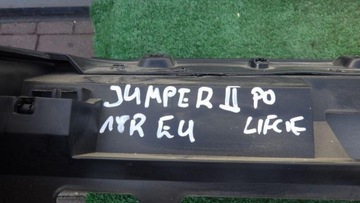 JUMPER II PO
18R EU LIFCIE